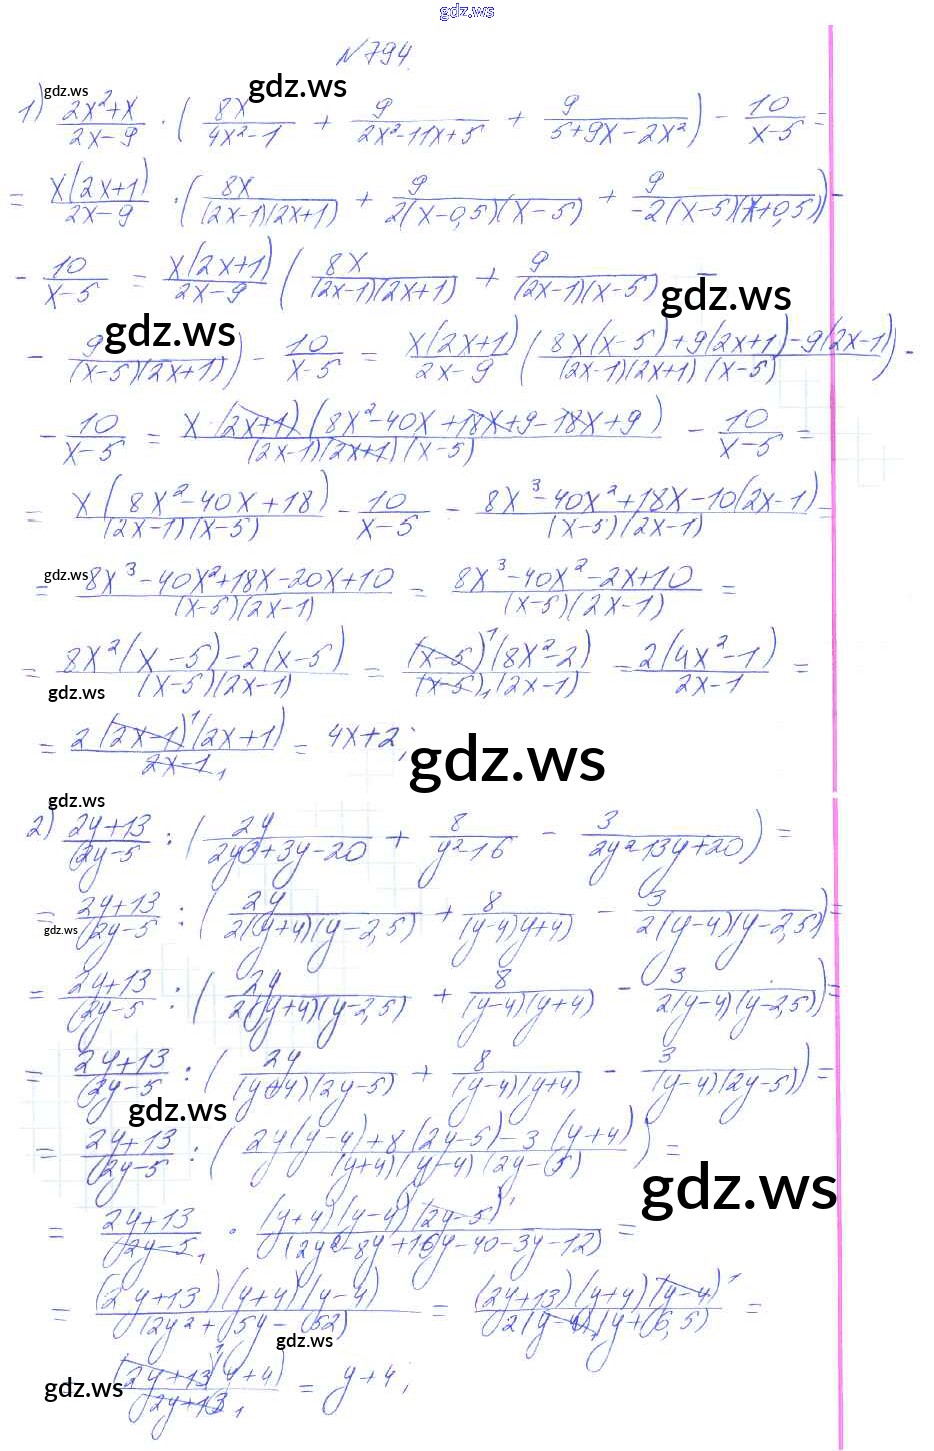 gdz.ws
№794.
gdz.ws gdz.ws
1) (2x²+x)/(2x-9) · (8x/(4x²-1) + 9/(2x²-11x+5) + 9/(5+9x-2x²)) - 10/(x-5) =
= x(2x+1)/(2x-9) · (8x/((2x-1)(2x+1)) + 9/(2(x-0,5)(x-5)) + 9/(-2(x-5)(x+0,5))) -
- 10/(x-5) = x(2x+1)/(2x-9) (8x/((2x-1)(2x+1)) + 9/((2x-1)(x-5)) -
gdz.ws gdz.ws
- 9/((x-5)(2x+1))) - 10/(x-5) = x(2x+1)/(2x-9) ((8x(x-5)+9(2x+1)-9(2x-1))/((2x-1)(2x+1)(x-5))) -
- 10/(x-5) = x·(2x+1)(8x²-40x+18x+9-18x+9)/((2x-1)(2x+1)(x-5)) - 10/(x-5) =
= x(8x²-40x+18)/((2x-1)(x-5)) - 10/(x-5) - (8x³-40x²+18x-10(2x-1))/((x-5)(2x-1)) =
gdz.ws
= (8x³-40x²+18x-20x+10)/((x-5)(2x-1)) = (8x³-40x²-2x+10)/((x-5)(2x-1)) =
= (8x²(x-5)-2(x-5))/((x-5)(2x-1)) = (x-5)¹(8x²-2)/((x-5)₁(2x-1)) = 2(4x²-1)/(2x-1) =
gdz.ws
= 2(2x-1)¹(2x+1)/(2x-1)₁ = 4x+2;
gdz.ws
gdz.ws
2) (2y+13)/(2y-5) : (2y/(2y3+3y-20) + 8/(y²-16) - 3/(2y²-13y+20)) =
= (2y+13)/(2y-5) : (2y/(2(y+4)(y-2,5)) + 8/((y-4)(y+4)) - 3/(2(y-4)(y-2,5))) =
gdz.ws
= (2y+13)/(2y-5) : (2y/(2(y+4)(y-2,5)) + 8/((y-4)(y+4)) - 3/(2(y-4)(y-2,5))) =
= (2y+13)/(2y-5) : (2y/((y+4)(2y-5)) + 8/((y-4)(y+4)) - 3/((y-4)(2y-5))) =
gdz.ws
= (2y+13)/(2y-5) : ((2y(y-4)+8(2y-5)-3(y+4))/((y+4)(y-4)(2y-5))) =
gdz.ws
= (2y+13)/(2y-5)₁ · (y+4)(y-4)(2y-5)¹/(2y²-8y+16y-40-3y-12) =
= (2y+13)(y+4)(y-4)/(2y²+5y-52) = (2y+13)(y+4)(y-4)¹/(2(y-4)₁(y+6,5)) =
gdz.ws
gdz.ws (2y+13)¹(y+4)/(2y+13)₁ = y+4;